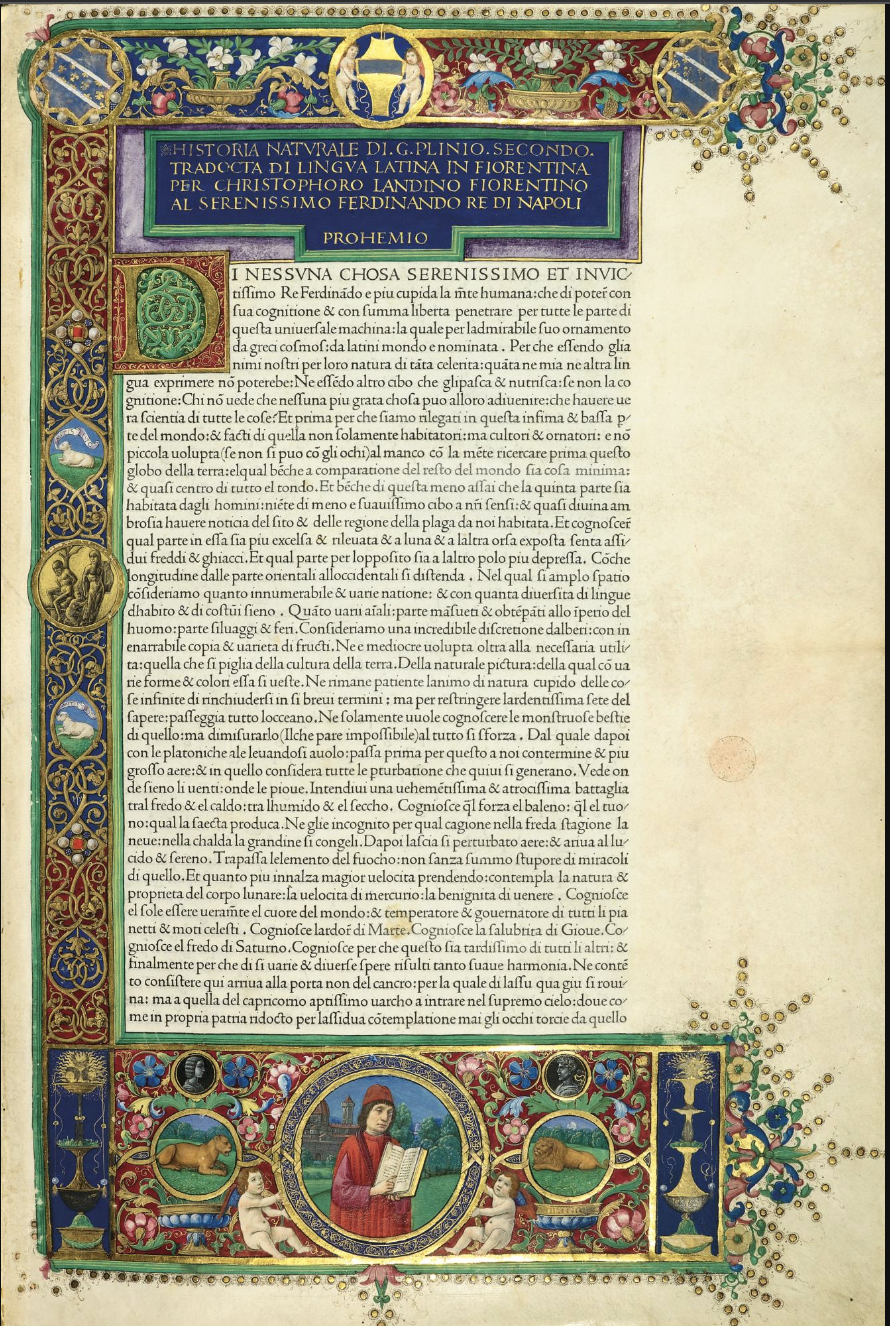 HISTORIA NATVRALE DI.G.PLINIO.SECONDO.
TRADOCTA DI LINGVA LATINA IN FIORENTINA
PER CHRISTOPHORO LANDINO FIORENTINO
AL SERENISSIMO FERDINANDO RE DI NAPOLI
PROHEMIO
DI NESSVNA CHOSA SERENISSIMO ET INVIC/
tiſſimo Re Ferdinādo e piu cupida la m̄te humana:che di poter̄ con
ſua cognitione & con ſumma liberta penetrare per tutte le parte di
queſta uniuerſale machina:la quale per ladmirabile ſuo ornamento
da greci coſmos:da latini mondo e nominata . Per che eſſendo glia
nimi noſtri per loro natura di tāta celerita:quāta ne mia ne altra lin
gua exprimere nō poterebe:Ne eſſēdo altro cibo che glipaſca & nutriſca:ſe non la co
gnitione:Chi nō uede che neſſuna piu grata choſa puo alloro adiuenire:che hauere ue
ra ſcientia di tutte le coſe?Et prima per che ſiamo rilegati in queſta infima & baſſa p/
te del mondo:& facti di quella non ſolamente habitatori:ma cultori & ornatori: e nō
piccola uolupta(ſe non ſi puo cō gli ochi)al manco cō la mēte ricercare prima queſto
globo della terra:elqual bēche a comparatione del reſto del mondo ſia coſa minima:
& quaſi centro di tutto el tondo.Et bēche di queſta meno aſſai che la quinta parte ſia
habitata dagli homini:niēte di meno e ſuauiſſimo cibo a nr̄i ſenſi:& quaſi diuina am
broſia hauere noticia del ſito & delle regione della plaga da noi habitata.Et cognoſcer̄
qual parte in eſſa ſia piu excelſa & rileuata & a luna & a laltra orſa expoſta ſenta aſſi/
dui freddi & ghiacci.Et qual parte per loppoſito ſia a laltro polo piu depreſſa. Cōche
longitudine dalle parte orientali alloccidentali ſi diſtenda . Nel qual ſi amplo ſpatio
cōſideriamo quanto innumerabile & uarie natione: & con quanta diuerſita di lingue
dhabito & di coſtūi ſieno . Quāto uarii aīali:parte māſueti & obtēpāti allo īperio del
huomo:parte ſiluaggi & feri.Conſideriamo una incredibile diſcretione dalberi:con in
enarrabile copia & uarieta di fructi.Ne e mediocre uolupta oltra alla neceſſaria utili/
ta:quella che ſi piglia della cultura della terra.Della naturale pictura:della qual cō ua
rie forme & colori eſſa ſi ueſte.Ne rimane patiente lanimo di natura cupido delle co/
ſe infinite di rinchiuderſi in ſi breui termini : ma per reſtringere lardentiſſima ſete del
ſapere:paſſeggia tutto locceano.Ne ſolamente uuole cognoſcere le monſtruoſe beſtie
di quello:ma dimiſurarlo(Ilche pare impoſſibile)al tutto ſi ſforza . Dal quale dapoi
con le platoniche ale leuandoſi auolo:paſſa prima per queſto a noi contermine & piu
groſſo aere:& in quello conſidera tutte le pturbatione che quiui ſi generano.Vede on
de ſieno li uenti:onde le pioue.Intendiui una uehemētiſſima & atrociſſima battaglia
tral fredo & el caldo:tra lhumido & el ſeccho. Cognioſce q̄l forza el baleno: q̄l el tuo/
no:qual la ſaecta produca.Ne glie incognito per qual cagione nella freda ſtagione la
neue:nella chalda la grandine ſi congeli.Dapoi laſcia ſi perturbato aere:& ariua al lu/
cido & ſereno.Trapaſſa lelemento del fuocho:non ſanza ſummo ſtupore di miracoli
di quello.Et quanto piu innalza magior uelocita prendendo:contempla la natura &
proprieta del corpo lunare:la uelocita di mercurio:la benignita di uenere . Cognioſce
el ſole eſſere ueram̄te el cuore del mondo:& temperatore & gouernatore di tutti li pia
netti & moti celeſti . Cognioſce lardor̄ di Marte.Cognioſce la ſalubrita di Gioue.Co/
gnioſce el fredo di Saturno.Cognioſce per che queſto ſia tardiſſimo di tutti li altri: &
finalmente per che di ſi uarie & diuerſe ſpere riſulti tanto ſuaue harmonia.Ne contē
to conſiſtere qui arriua alla porta non del cancro:per la quale di laſſu qua giu ſi roui/
na: ma a quella del capricorno aptiſſimo uarcho a intrare nel ſupremo cielo:doue co/
me in propria patria ridocto per laſſidua cōtemplatione mai gli occhi torcie da quello